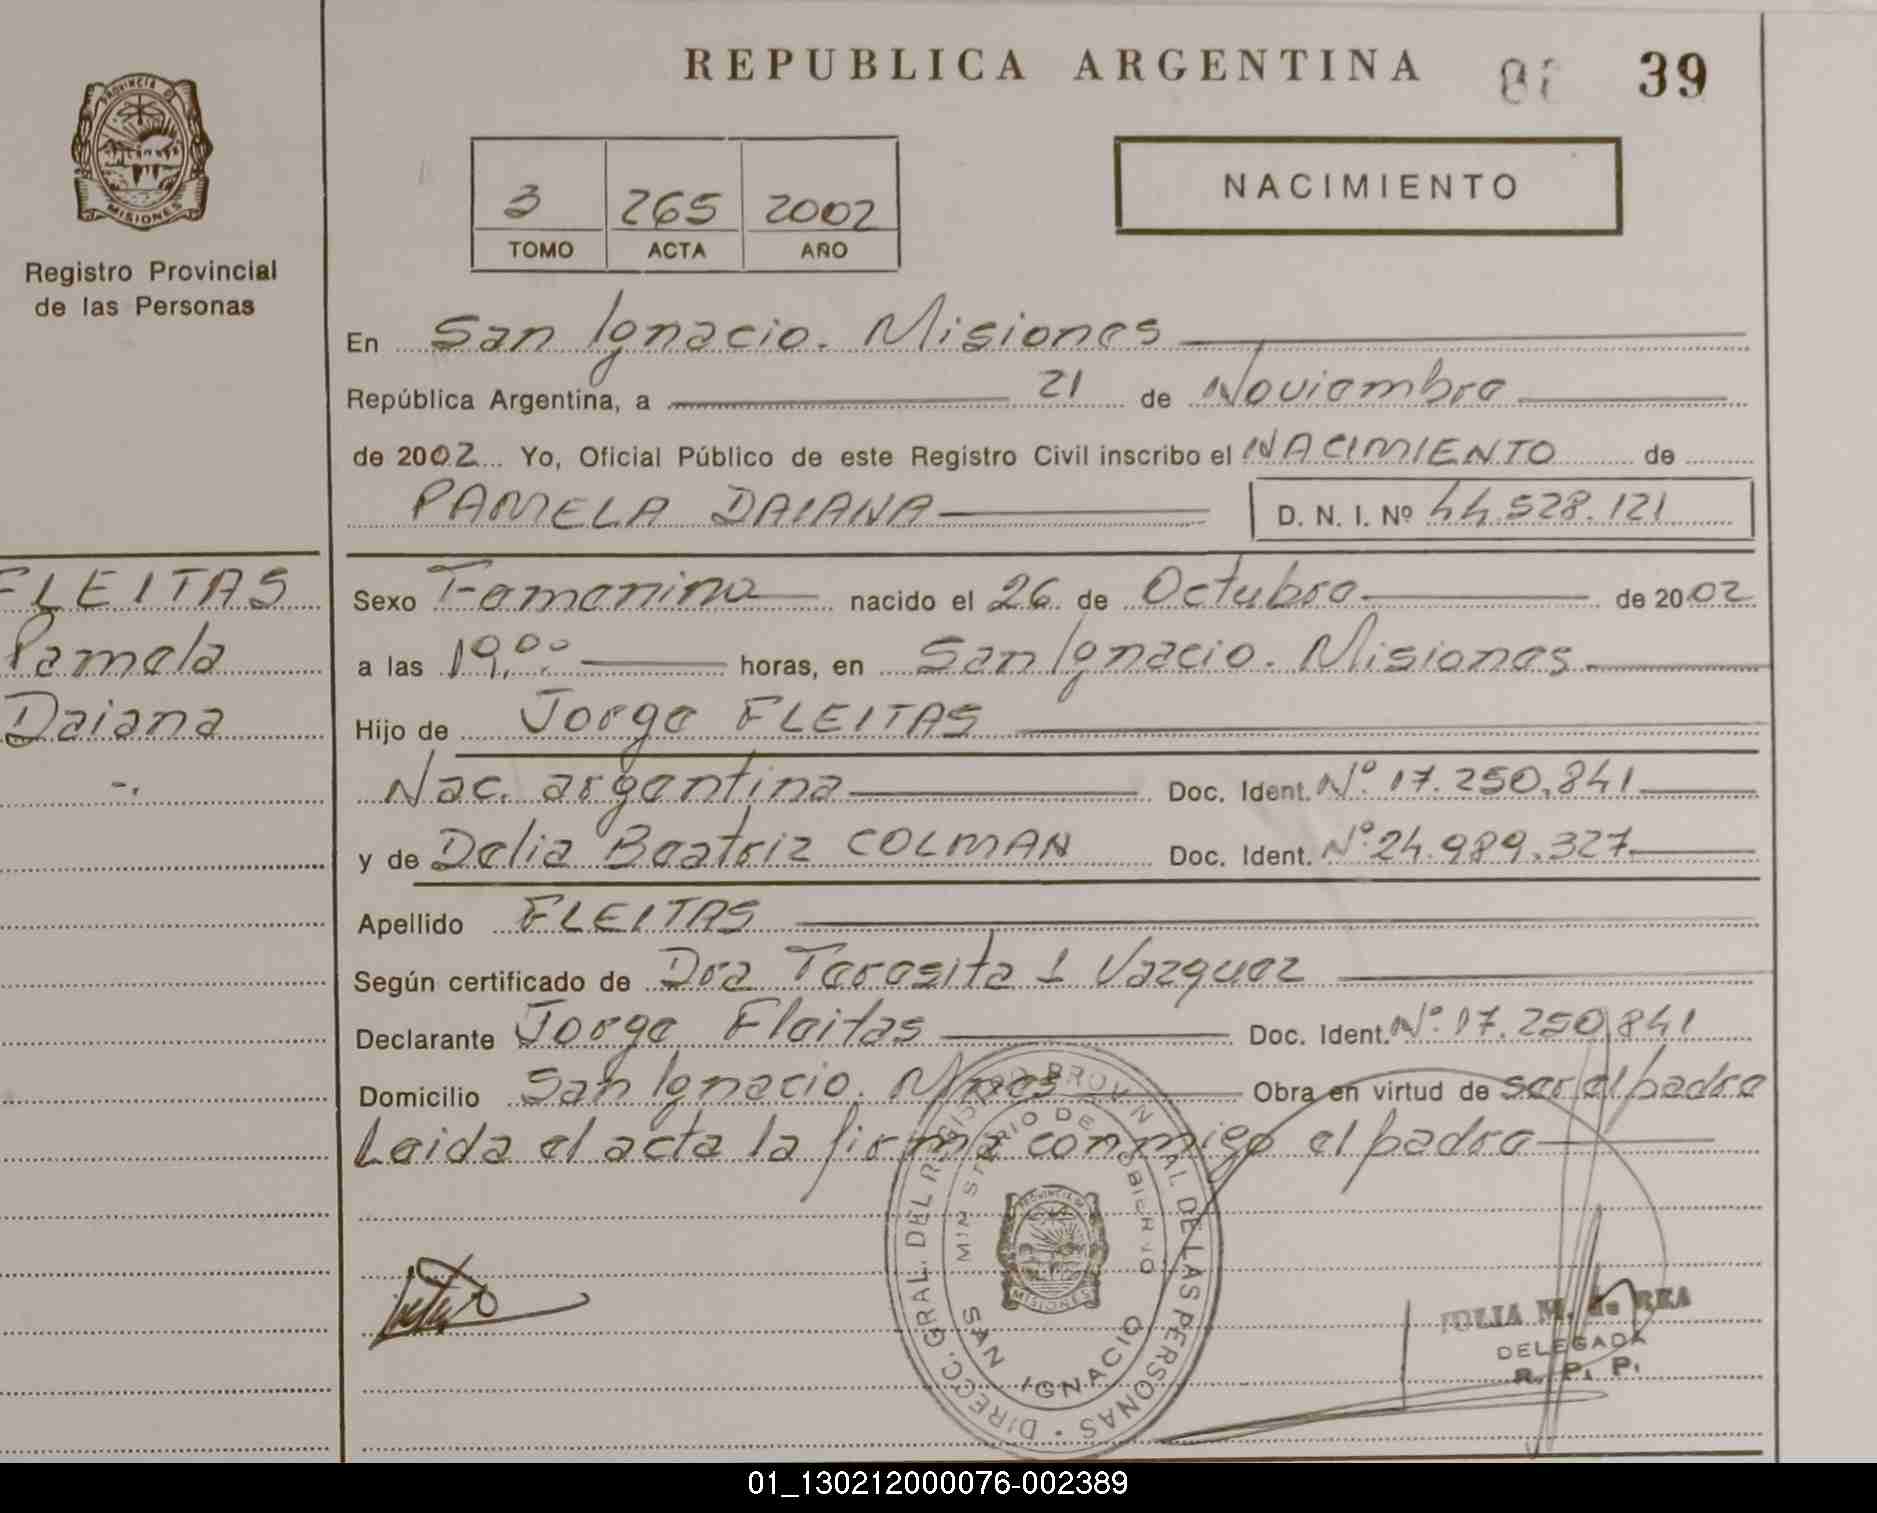 REPUBLICA ARGENTINA 39
PROVINCIA DE MISIONES
Registro Provincial
de las Personas
3 265 2002
TOMO ACTA AÑO
NACIMIENTO
En San Ignacio. Misiones
República Argentina, a 21 de Noviembre
de 2002 Yo, Oficial Público de este Registro Civil inscribo el NACIMIENTO de
PAMELA DAIANA D. N. I. Nº 44.528.121
FLEITAS
Pamela
Daiana
Sexo Femenino nacido el 26 de Octubre de 2002
a las 19,00 horas, en San Ignacio. Misiones
Hijo de Jorge FLEITAS
Nac. argentina Doc. Ident. Nº 17.250.841
y de Delia Beatriz COLMAN Doc. Ident. Nº 24.989.327
Apellido FLEITAS
Según certificado de Dra Teresita I Vazquez
Declarante Jorge Fleitas Doc. Ident. Nº 17.250.841
Domicilio San Ignacio. Mnes Obra en virtud de ser el padre
Leida el acta la firma conmigo el padre
DIRECC. GRAL. DEL REGISTRO PROVINCIAL DE LAS PERSONAS
MINISTERIO DE GOBIERNO
PROVINCIA DE MISIONES
SAN IGNACIO
JULIA M. de REA
DELEGADA
R. P. P.
01_130212000076-002389